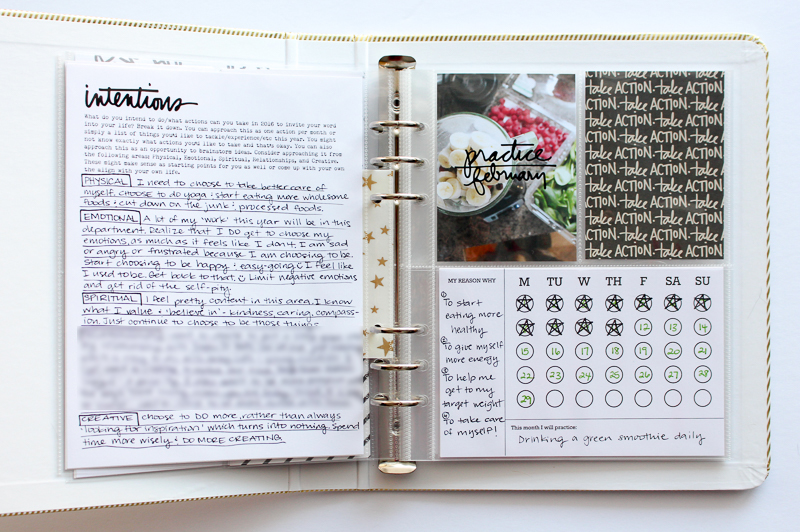 intentions
What do you intend to do/what actions can you take in 2016 to invite your word
into your life? Break it down. You can approach this as one action per month or
simply a list of things you'd like to tackle/experience/etc this year. You might
not know exactly what actions you'd like to take and that's okay. You can also
approach this as an opportunity to brainstorm ideas. Consider approaching it from
the following areas: Physical, Emotional, Spiritual, Relationships, and Creative.
These might make sense as starting points for you as well or come up with your own
the align with your own life.
PHYSICAL I need to choose to take better care of
myself. choose to do yoga & start eating more wholesome
foods & cut down on the junk & processed foods.
EMOTIONAL A lot of my 'work' this year will be in this
department. Realize that I DO get to choose my
emotions, as much as it feels like I don't, I am sad
or angry or frustrated because I am choosing to be.
Start choosing to be happy & easy-going & I feel like
I used to be. Get back to that. Limit negative emotions
and get rid of the self-pity.
SPIRITUAL I feel pretty content in this area, I know
what I value & 'believe in' - kindness, caring, compass-
ion. Just continue to choose to be those things.
CREATIVE choose to DO more, rather than always
'looking for inspiration' which turns into nothing. spend
time more wisely & DO MORE CREATING
practice
february
take ACTION.
MY REASON WHY
M TU W TH F SA SU
① To start
eating more
healthy
② To give myself
more energy
③ To help me
get to my
target weight
④ To take care
of myself!
12 13 14
15 16 17 18 19 20 21
22 23 24 25 26 27 28
29
This month I will practice:
Drinking a green smoothie daily